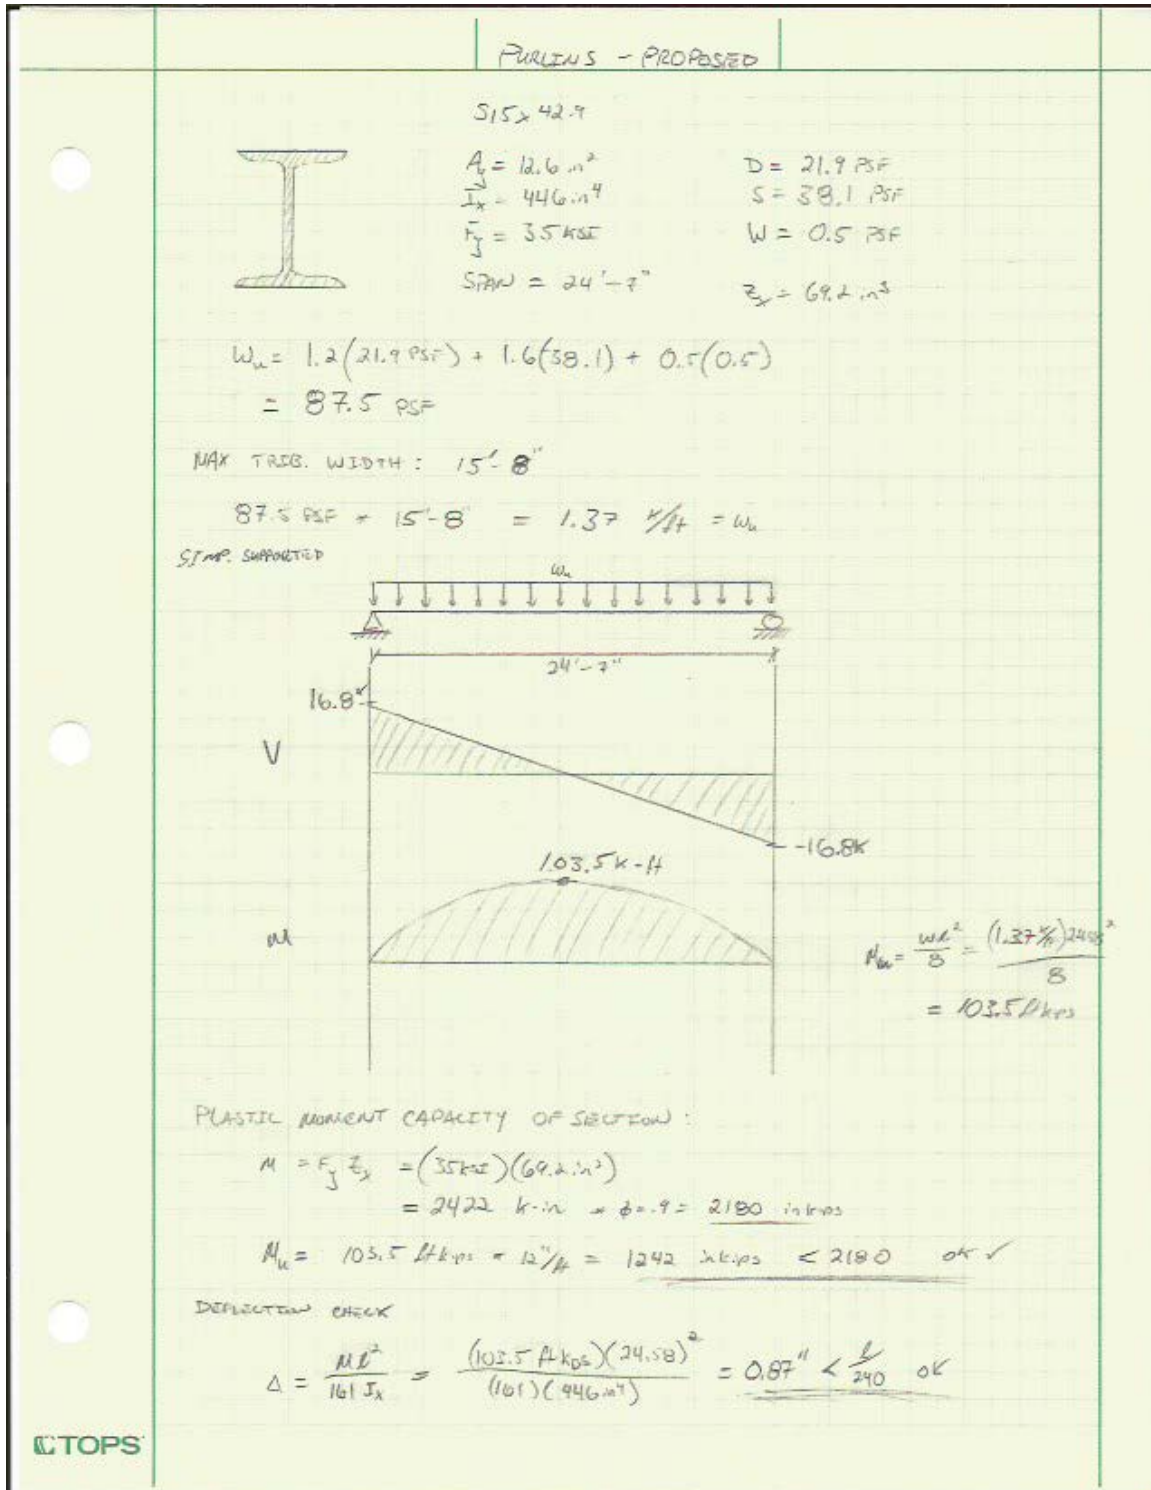 PURLINS - PROPOSED
S15x42.9
Ag = 12.6 in² D = 21.9 PSF
Ix = 446 in⁴ S = 38.1 PSF
Fy = 35 KSI W = 0.5 PSF
SPAN = 24'-7" Zx = 69.2 in³
Wu = 1.2(21.9 PSF) + 1.6(38.1) + 0.5(0.5)
= 87.5 PSF
MAX TRIB. WIDTH: 15'-8"
87.5 PSF * 15'-8" = 1.37 k/ft = wu
SIMP. SUPPORTED
wu
24'-7"
16.8k
V
-16.8k
103.5 k-ft
M
Mu = wl²/8 = (1.37 k/ft)24.58²/8
= 103.5 ft kips
PLASTIC MOMENT CAPACITY OF SECTION:
M = Fy Zx = (35 KSI)(69.2 in³)
= 2422 k-in * ϕ=.9 = 2180 in kips
Mu = 103.5 ft kips * 12"/ft = 1242 in kips < 2180 OK ✓
DEFLECTION CHECK
Δ = Ml²/161 Ix = (103.5 ft kps)(24.58)²/(161)(446 in⁴) = 0.87" < l/240 OK
TOPS